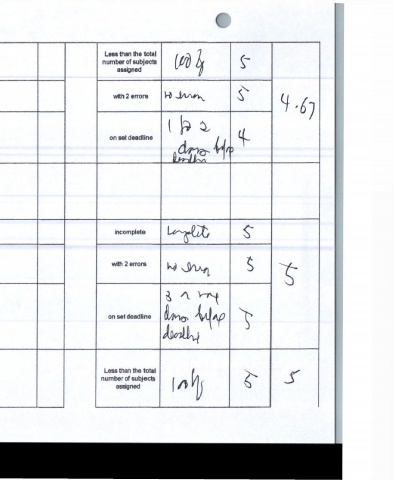 Less than the total
number of subjects
assigned
100%
5
with 2 errors
no error
5
4.67
on set deadline
1 to 2
days before
deadline
4
incomplete
Complete
5
with 2 errors
no error
5
5
on set deadline
3 or more
days before
deadline
5
Less than the total
number of subjects
assigned
100%
5
5